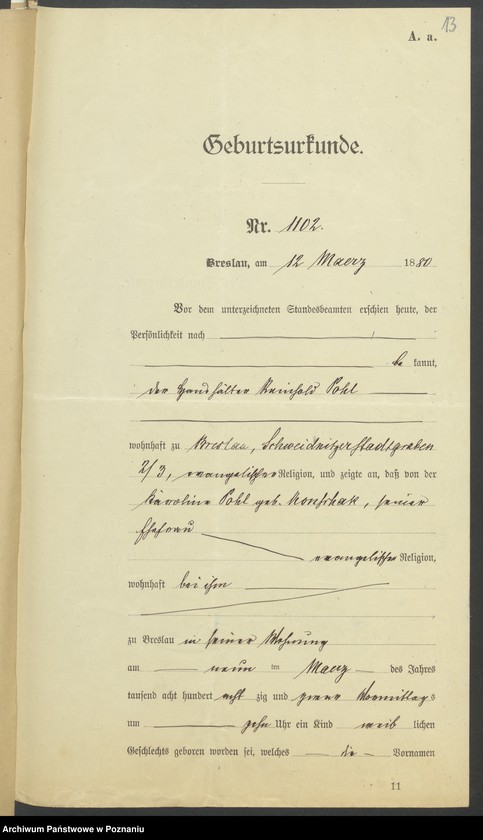 13
A. a.
Geburtsurkunde.
Nr. 1102.
Breslau, am 12 Maerz 1880
Vor dem unterzeichneten Standesbeamten erschien heute, der
Persönlichkeit nach
be kannt,
der Haushälter Reinhold Pohl
wohnhaft zu Breslau, Schweidnitzerstadtgraben
2/3, evangelischer Religion, und zeigte an, daß von der
Karoline Pohl geb. , seiner
Ehefrau
evangelischer Religion,
wohnhaft bei ihm
zu Breslau in seiner Wohnung
am neun ten Maerz des Jahres
tausend acht hundert acht zig und Vormittags
um zehn Uhr ein Kind weib lichen
Geschlechts geboren worden sei, welches die Vornamen
11
Archiwum Państwowe w Poznaniu